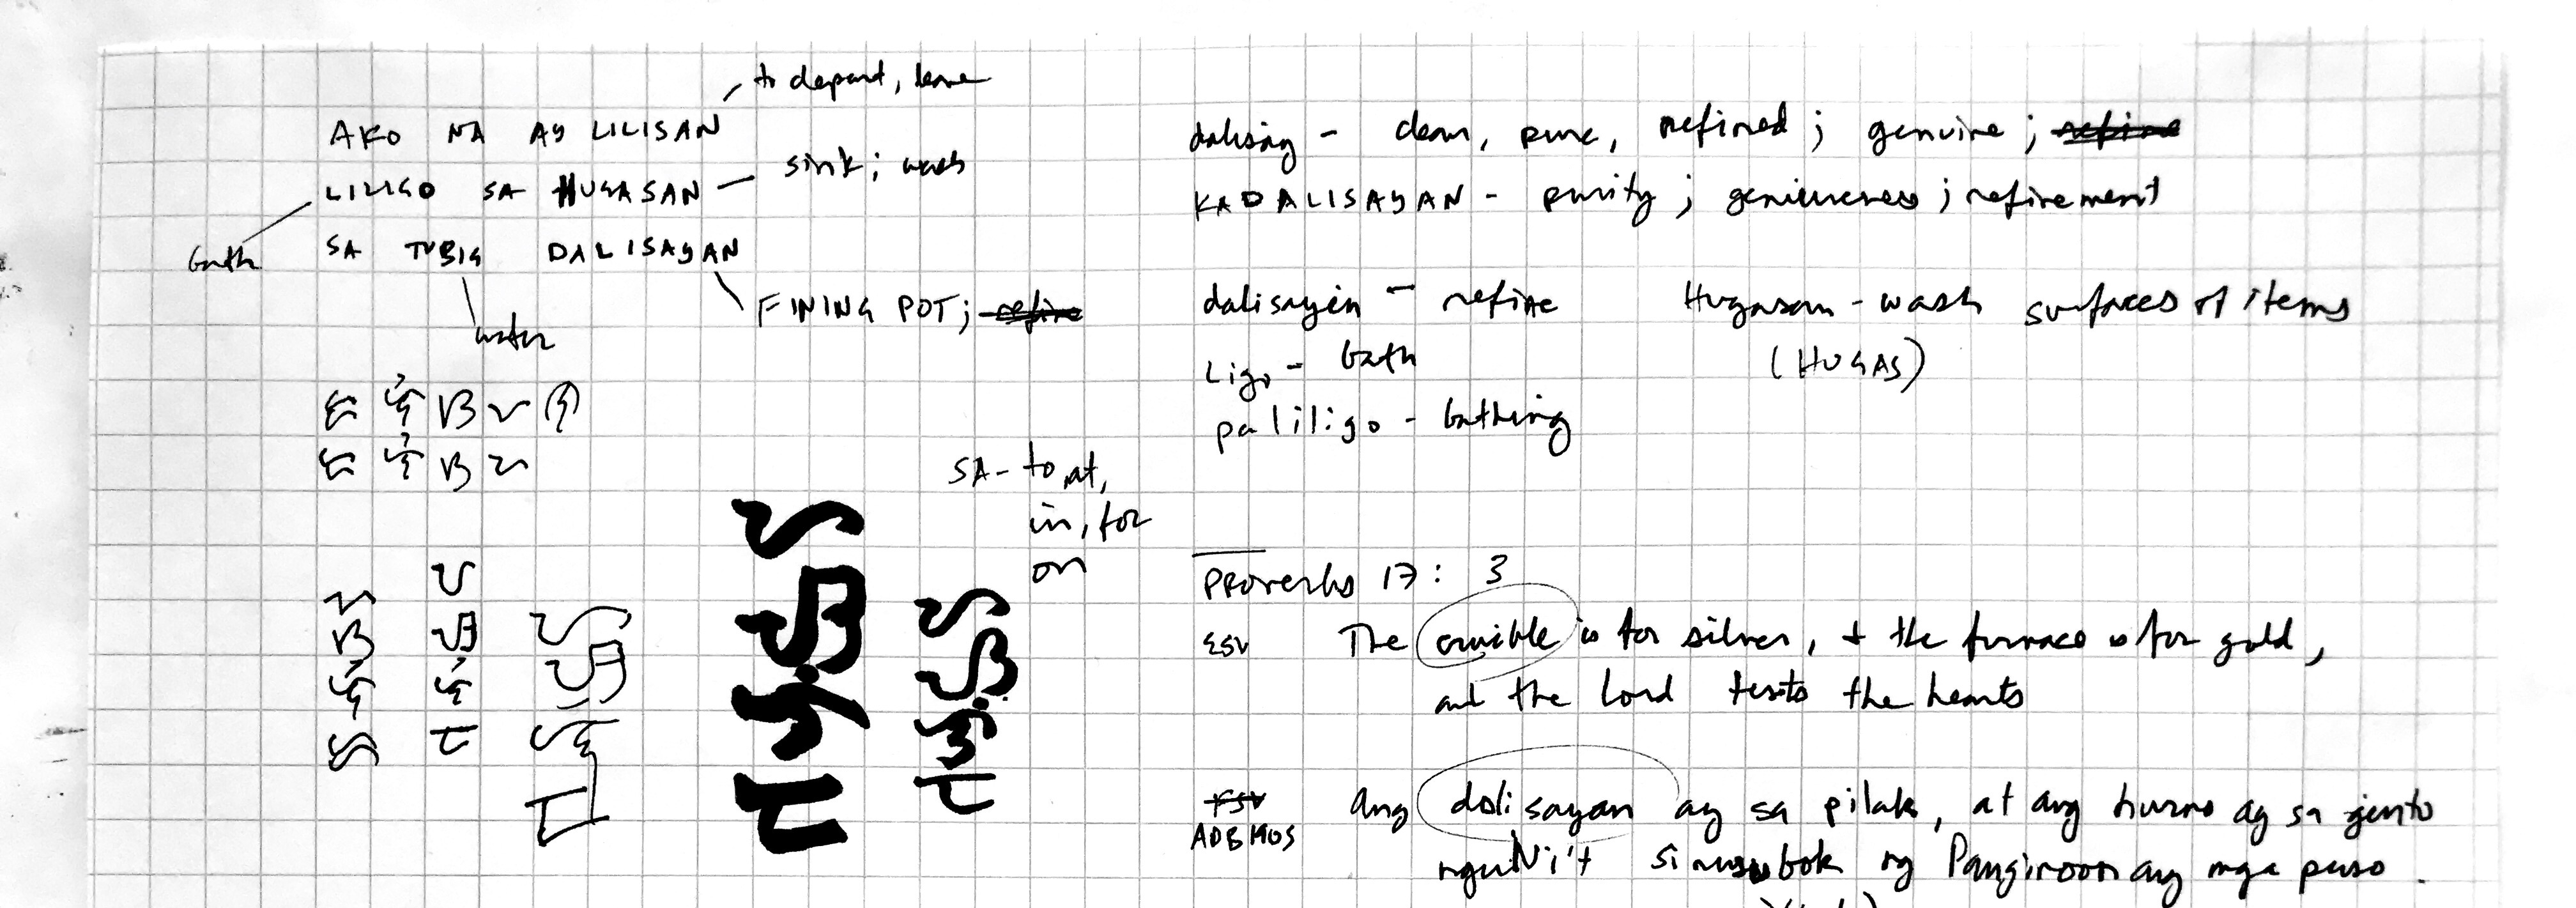 to depart, leave
AKO NA AY LILISAN
sink; wash
LILIGO SA HUGASAN
bath
SA TUBIG DALISAYAN
FINING POT; refine
water
SA - to, at,
in, for
on
dalisay - clean, pure, refined; genuine; refine
KADALISAYAN - purity; genuineness; refinement
dalisayin - refine
Hugasan - wash surfaces of items
(HUGAS)
Ligo - bath
paliligo - bathing
Proverbs 17: 3
ESV The crucible is for silver, + the furnace is for gold,
and the Lord tests the hearts
ADB 1905 Ang dalisayan ay sa pilak, at ang hurno ay sa ginto
nguNi't sinusubok ng Panginoon ang mga puso.